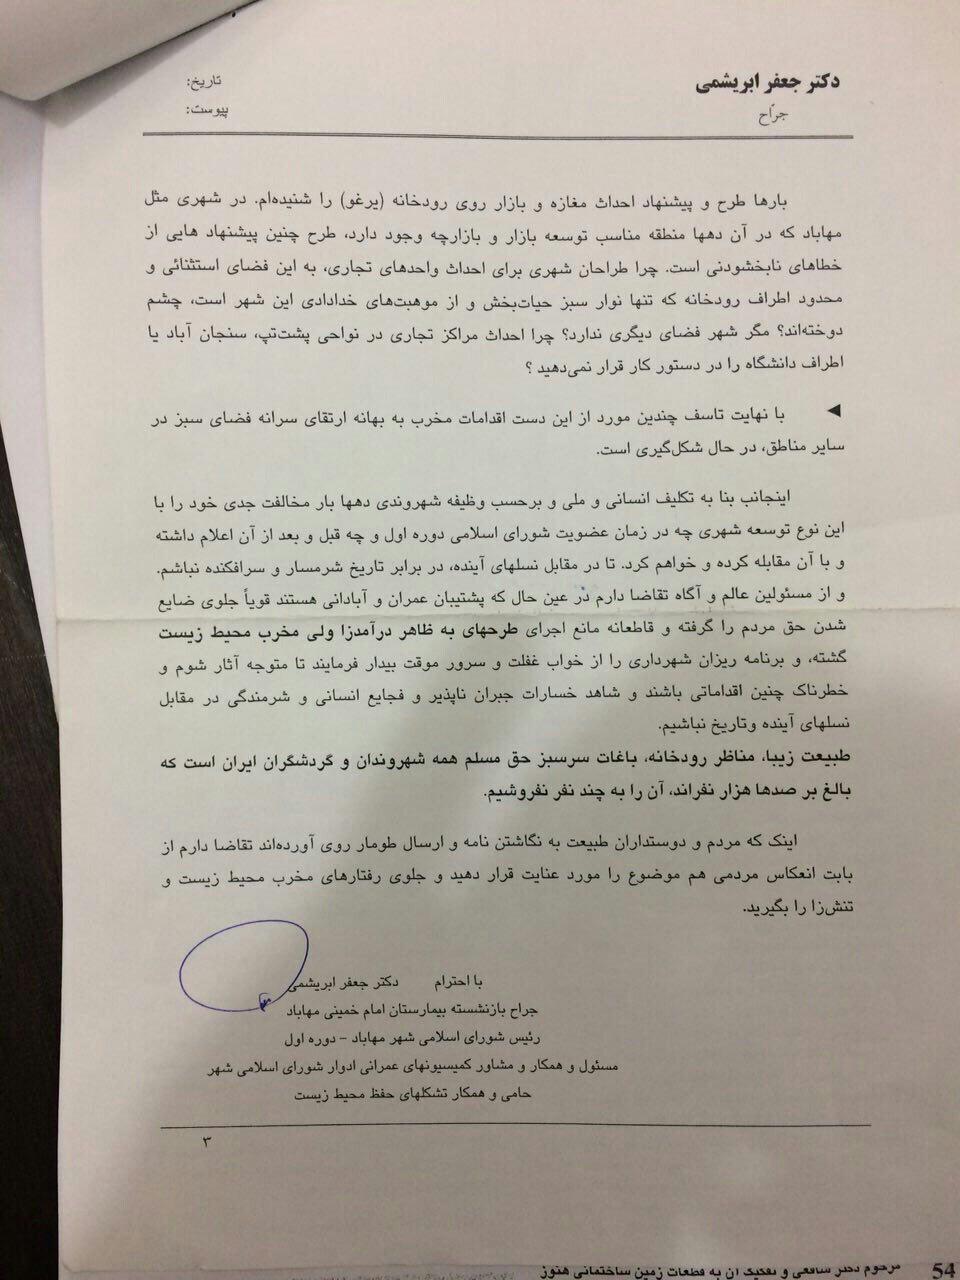 دکتر جعفر ابریشمی
جرّاح
تاریخ:
پیوست:
بارها طرح و پیشنهاد احداث مغازه و بازار روی رودخانه (یرغو) را شنیده‌ام. در شهری مثل
مهاباد که در آن دهها منطقه مناسب توسعه بازار و بازارچه وجود دارد، طرح چنین پیشنهاد هایی از
خطاهای نابخشودنی است. چرا طراحان شهری برای احداث واحدهای تجاری، به این فضای استثنائی و
محدود اطراف رودخانه که تنها نوار سبز حیات‌بخش و از موهبت‌های خدادادی این شهر است، چشم
دوخته‌اند؟ مگر شهر فضای دیگری ندارد؟ چرا احداث مراکز تجاری در نواحی پشت‌تپ، سنجان آباد یا
اطراف دانشگاه را در دستور کار قرار نمی‌دهید ؟
◄ با نهایت تاسف چندین مورد از این دست اقدامات مخرب به بهانه ارتقای سرانه فضای سبز در
سایر مناطق، در حال شکل‌گیری است.
اینجانب بنا به تکلیف انسانی و ملی و برحسب وظیفه شهروندی دهها بار مخالفت جدی خود را با
این نوع توسعه شهری چه در زمان عضویت شورای اسلامی دوره اول و چه قبل و بعد از آن اعلام داشته
و با آن مقابله کرده و خواهم کرد. تا در مقابل نسلهای آینده، در برابر تاریخ شرمسار و سرافکنده نباشم.
و از مسئولین عالم و آگاه تقاضا دارم در عین حال که پشتیبان عمران و آبادانی هستند قویاً جلوی ضایع
شدن حق مردم را گرفته و قاطعانه مانع اجرای طرحهای به ظاهر درآمدزا ولی مخرب محیط زیست
گشته، و برنامه ریزان شهرداری را از خواب غفلت و سرور موقت بیدار فرمایند تا متوجه آثار شوم و
خطرناک چنین اقداماتی باشند و شاهد خسارات جبران ناپذیر و فجایع انسانی و شرمندگی در مقابل
نسلهای آینده وتاریخ نباشیم.
طبیعت زیبا، مناظر رودخانه، باغات سرسبز حق مسلم همه شهروندان و گردشگران ایران است که
بالغ بر صدها هزار نفراند، آن را به چند نفر نفروشیم.
اینک که مردم و دوستداران طبیعت به نگاشتن نامه و ارسال طومار روی آورده‌اند تقاضا دارم از
بابت انعکاس مردمی هم موضوع را مورد عنایت قرار دهید و جلوی رفتارهای مخرب محیط زیست و
تنش‌زا را بگیرید.
با احترام دکتر جعفر ابریشمی
جراح بازنشسته بیمارستان امام خمینی مهاباد
رئیس شورای اسلامی شهر مهاباد – دوره اول
مسئول و همکار و مشاور کمیسیونهای عمرانی ادوار شورای اسلامی شهر
حامی و همکار تشکلهای حفظ محیط زیست
۳
54 مرحوم دکتر شافعی و تفکیک آن به قطعات زمین ساختمانی هنوز